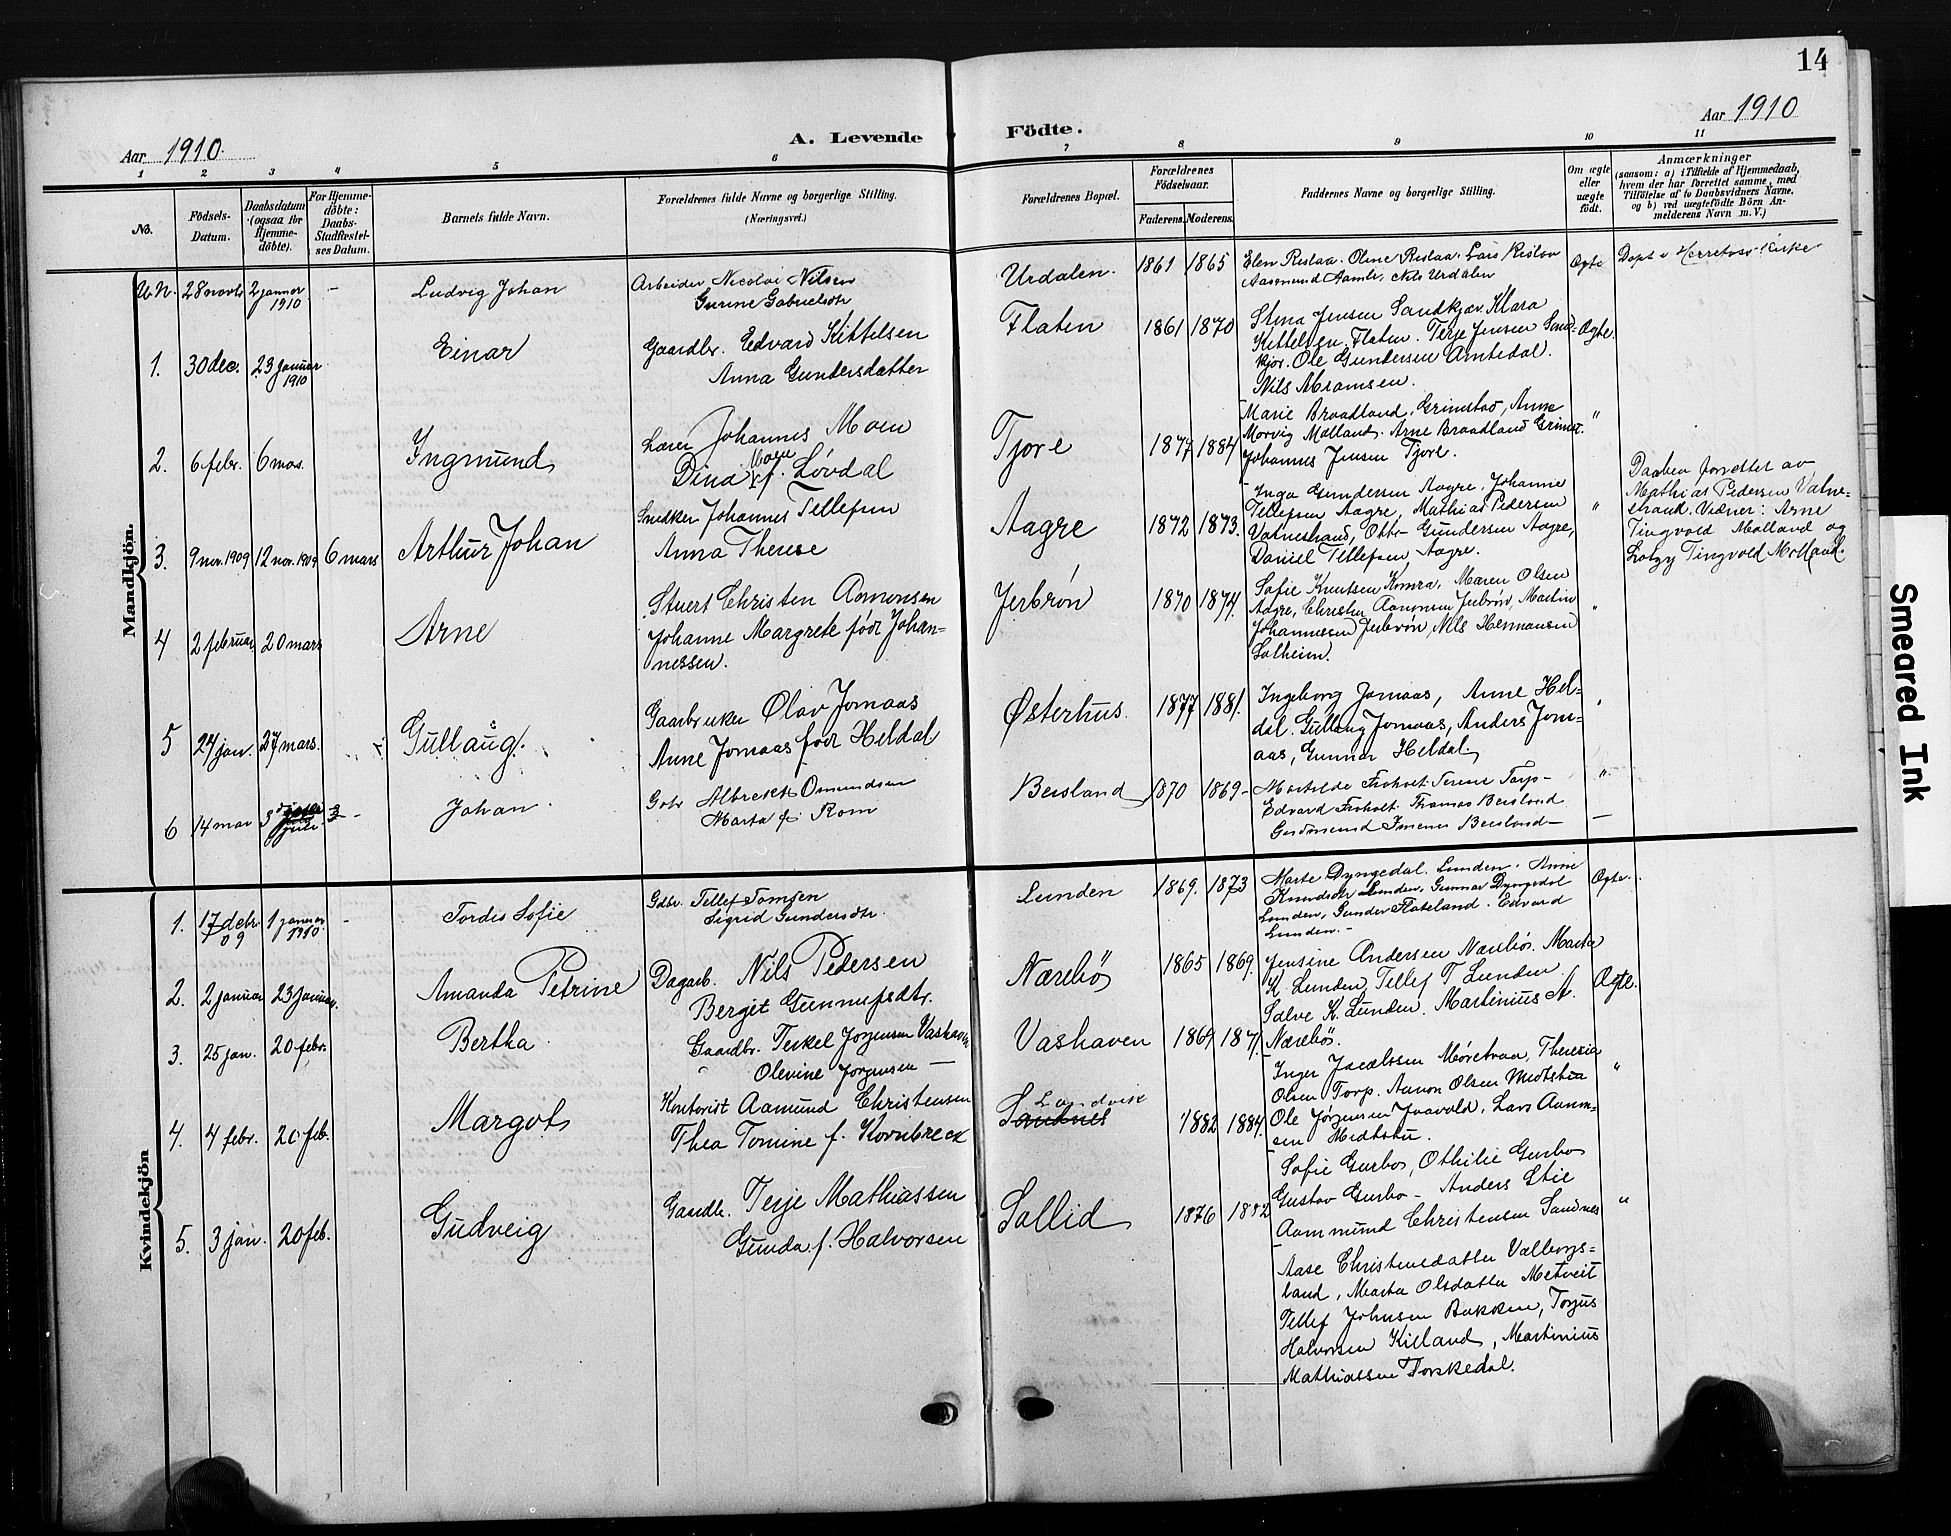 14
Aar 1910
A. Levende
Födte.
Aar 1910
1 2 3 4 5 6 7 8 9 10 11
No.
Födsels-
Datum.
Daabsdatum
(ogsaa for
Hjemme-
döbte).
For Hjemme-
döbte:
Daabs-
Stadfæstel-
ses Datum.
Barnets fulde Navn.
Forældrenes fulde Navne og borgerlige Stilling.
(Næringsvei.)
Forældrenes Bopæl.
Forældrenes
Födselsaar.
Faderens. Moderens.
Faddernes Navne og borgerlige Stilling.
Om ægte
eller
uægte
födt.
Anmærkninger
(saasom: a) i Tilfælde af Hjemmedaab,
hvem der har forrettet samme, med
Tilföielse af to Daabsvidners Navne,
og b) ved uægtefödte Börn An-
melderens Navn m.V.)
Mandkjön.
U.N. 28 novbr 2 januar 1910 - Ludvig Johan
Arbeider Nicolai Nilsen
Gurine Gabrielsdtr
Urdalen. 1861 1865
Elen Reslaa. Oline Reslaa. Lars
Aasmund Aamli. Nils Urdalen
Ægte
Döpt i Herretvso Kirke
1. 30 dec. 23 januar 1910 Einar
Gaardbr. Edvard Kittelsen
Anna Gundersdatter
Flaten 1861 1870
Stina Jensen Sandkjær. Klara
Kittelsen, Flaten. Terje Jensen Sand-
kjør. Ole Gundersen Amtedal.
Nils Abramsen.
Ægte.
2. 6 febr. 6 mas. Ingmund
Lærer Johannes Moen
Dina Moen f. Løvdal
Tjore 1877 1884
Marie Braadland, Grimstad, Anne
Morvig Molland. Arne Braadland Grimst.
Johannes Jensen Tjore.
"
3. 9 nov. 1909 12 nov. 1909 6 mars Arthur Johan
Snedker Johannes Tellefsen
Anna Therese
Aagre 1872 1873.
Inga Gundersen Aagre, Johanne
Tellefsen Aagre, Mathias Pedersen
Vatnestrand, Otto Gundersen Aagre,
Daniel Tellefsen Aagre.
"
Daaben forrettet av
Mathias Pedersen Vatne-
strand. Vidner: Arne
Tingvold Molland og
Tingvold Molland.
4 2 februar 20 mars Arne
Stuert Christen Aamonsen
Johanne Margrete født Johan-
nessen.
Jerbrøn 1870 1874.
Sofie Knutsen Komra, Maren Olsen
Aagre, Christen Aanonsen Jerbrøn, Martin
Johannesen Jerbrøn, Nils Hermansen
Solheim.
"
5 24 jan. 27 mars. Gullaug.
Gaarbruker Olav Jomaas
Anne Jomaas født Heldal
Østerhus. 1877 1881.
Ingeborg Jomaas, Anne Hel-
dal. Gullaug Jomaas, Anders Jom-
aas, Gunnar Heldal.
"
6 14 mai 3 juli 3 - Johan.
Gbr Albrekt Osmundsen
Marta f. Rom
Beisland 1870 1869-
Mathilde Froholt Torp-
Edvard Froholt Thomas Beisland
Beisland-
"
Kvindekjön
1. 17 debr. 09 1 januar 1910. - Tordis Sofie
Gdbr. Tellef Tomsen
Sigrid Gundersdtr.
Lunden 1869. 1873
Marte Dyngedal. Lunden. Anne
Knudsdtr Lunden, Gunnar Dyngedal
Lunden, Gunder Flateland. Edvard
Lunden.-
Ægte.
2. 2 januar 23 januar. Amanda Petrine
Dagarb. Nils Pedersen
Bergit Gunnufsdtr.
Nærebø 1865 1869.
Jensine Andersen Nærebø. Marta
K Lunden, Tellef T Lunden
Salve K. Lunden. Martinius A.
Nærebø.
Ægte.
3. 25 jan. 20 febr. Bertha.
Gaardbr. Terkel Jørgensen Vashaven
" Olevine Jørgensen -
Vashaven 1869 1871.
Inger Jacobsen Møretraa, Theresia
Olsen Torp. Aanon Olsen Midtstua
Ole Jørgensen Jvavold, Lars Aanon-
sen Midtstu.
"
4. 4 febr. 20 feb. Margot
Kontorist Aamund Christensen
Thea Tomine f. Kornbrek
Landvik
Sandnes 1882 1884.
Sofie Gurbo, Othilie Gurbo
Gustav Gurbo - Anders Stie
Aammund Christensen Sandnes
"
5. 3 jan. 20 feb. Gudveig
Gaardbr. Terje Mathiassen
Gunda f. Halvorsen
Sollid 1876 1882
Aase Christensdatter Valborgs-
land, Marta Olsdatter Metveit
Tellef Johnsen Bakken, Torjus
Halvorsen Killand, Martinius
Mathiassen Torskedal.
Smeared Ink